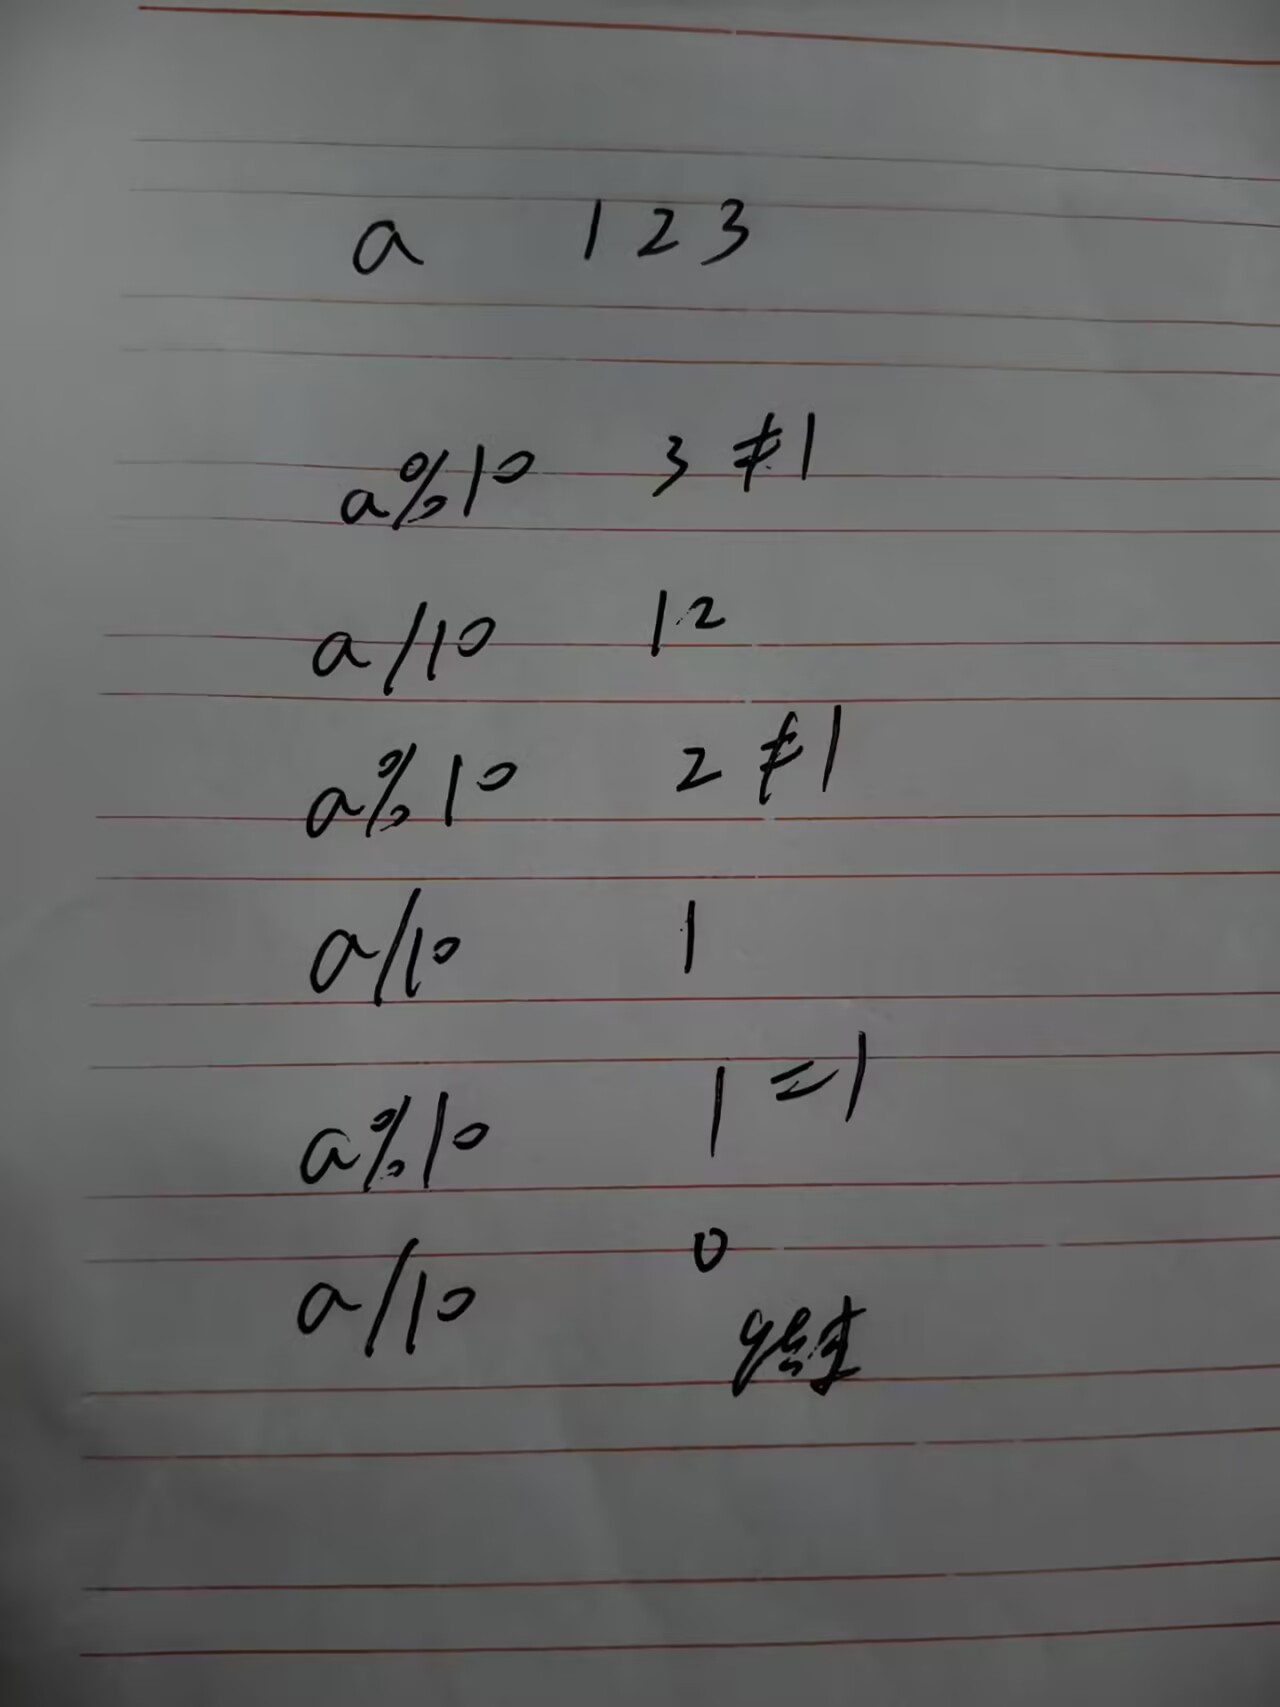 a 1 2 3
a%10 3 ≠ 1
a/10 12
a%10 2 ≠ 1
a/10 1
a%10 1 = 1
a/10 0